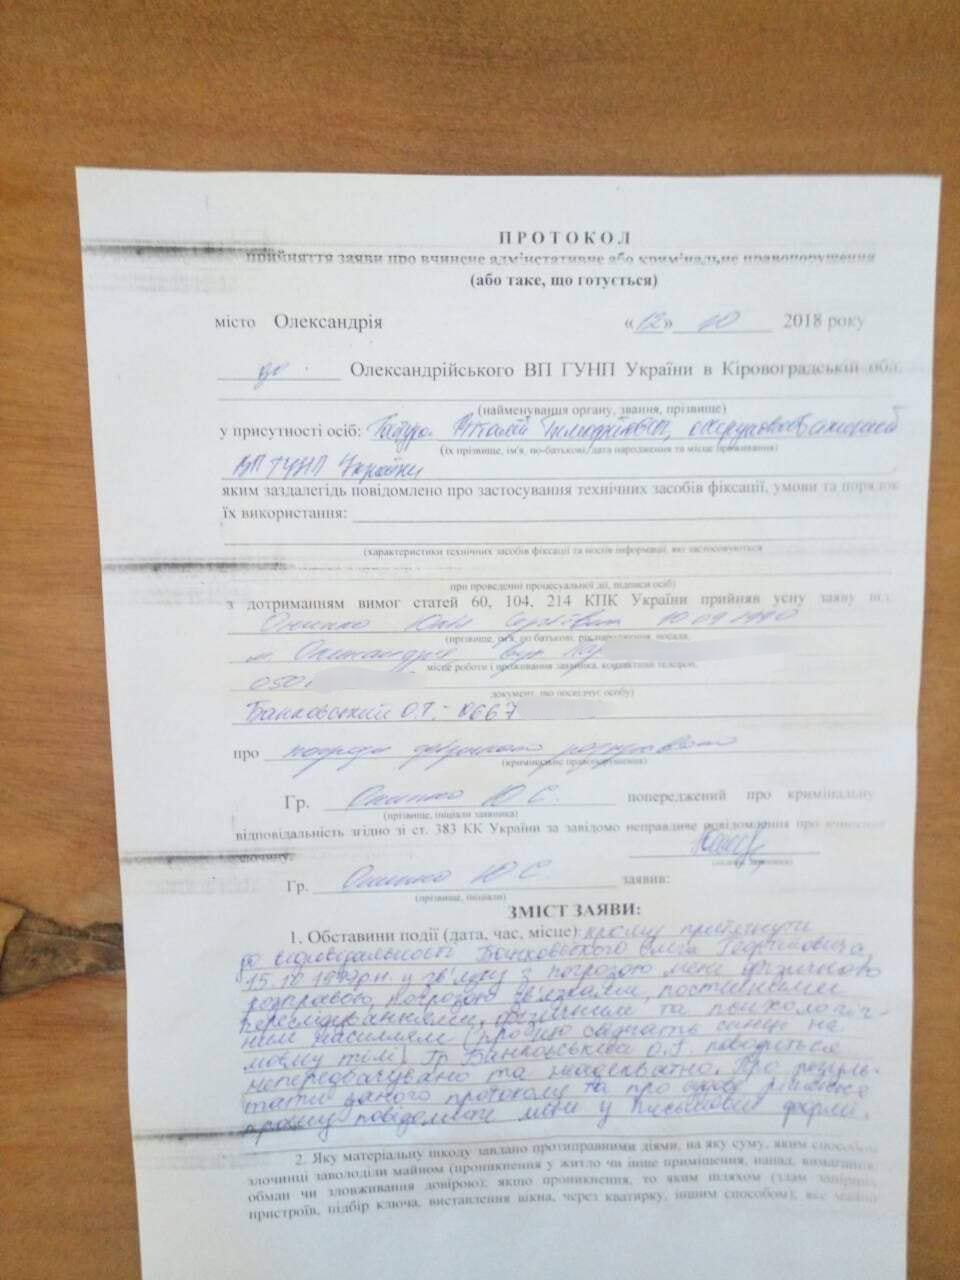 ПРОТОКОЛ
прийняття заяви про вчинене адмістативне або кримінальне правопорушення
(або таке, що готується)
місто Олександрія «12» 10 2018 року
Олександрійського ВП ГУНП України в Кіровоградській обл.
(найменування органу, звання, прізвище)
у присутності осіб: Віталій
(їх прізвище, ім'я, по-батькові, дата народження та місце проживання)
ВП ГУНП України
яким заздалегідь повідомлено про застосування технічних засобів фіксації, умови та порядок
їх використання:
(характеристики технічних засобів фіксації та носіїв інформації, які застосовуються
при проведенні процесуальної дії, підписи осіб)
з дотриманням вимог статей 60, 104, 214 КПК України прийняв усну заяву від:
10.09.1990
(прізвище, ім'я, по батькові, рік народження, посада,
м. Олександрія вул
місце роботи і проживання заявника, контактний телефон,
050
документ, що посвідчує особу)
Банковський О.Г. - 0667
про погрози фізичною розправою
(кримінальне правопорушення)
Гр. Ю.С. попереджений про кримінальну
(прізвище, ініціали заявника)
відповідальність згідно зі ст. 383 КК України за завідомо неправдиве повідомлення про вчинення
злочину.
Гр. Ю.С. заявив:
(прізвище, ініціали)
ЗМІСТ ЗАЯВИ:
1. Обставини події (дата, час, місце) прошу притягнути
до відповідальності Банковського Олега Георгійовича,
15.10 у зв'язку з погрозою мені фізичною
розправою, погрозою зв'язками, постійними
переслідуваннями, фізичним та психологіч-
ним насиллям (про що свідчать синці на
моєму тілі). Гр. Банковський О.Г. поводиться
непередбачувано та неадекватно. Про резуль-
тати даного протоколу та про судове рішення
прошу повідомити мені у письмовій формі.
2. Яку матеріальну шкоду завдано протиправними діями, на яку суму, яким способом
злочинці заволоділи майном (проникнення у житло чи інше приміщення, напад, вимагання,
обман чи зловживання довірою); якщо проникнення, то яким шляхом (злам запірних
пристроїв, підбір ключа, виставлення вікна, через кватирку, іншим способом); яке майно